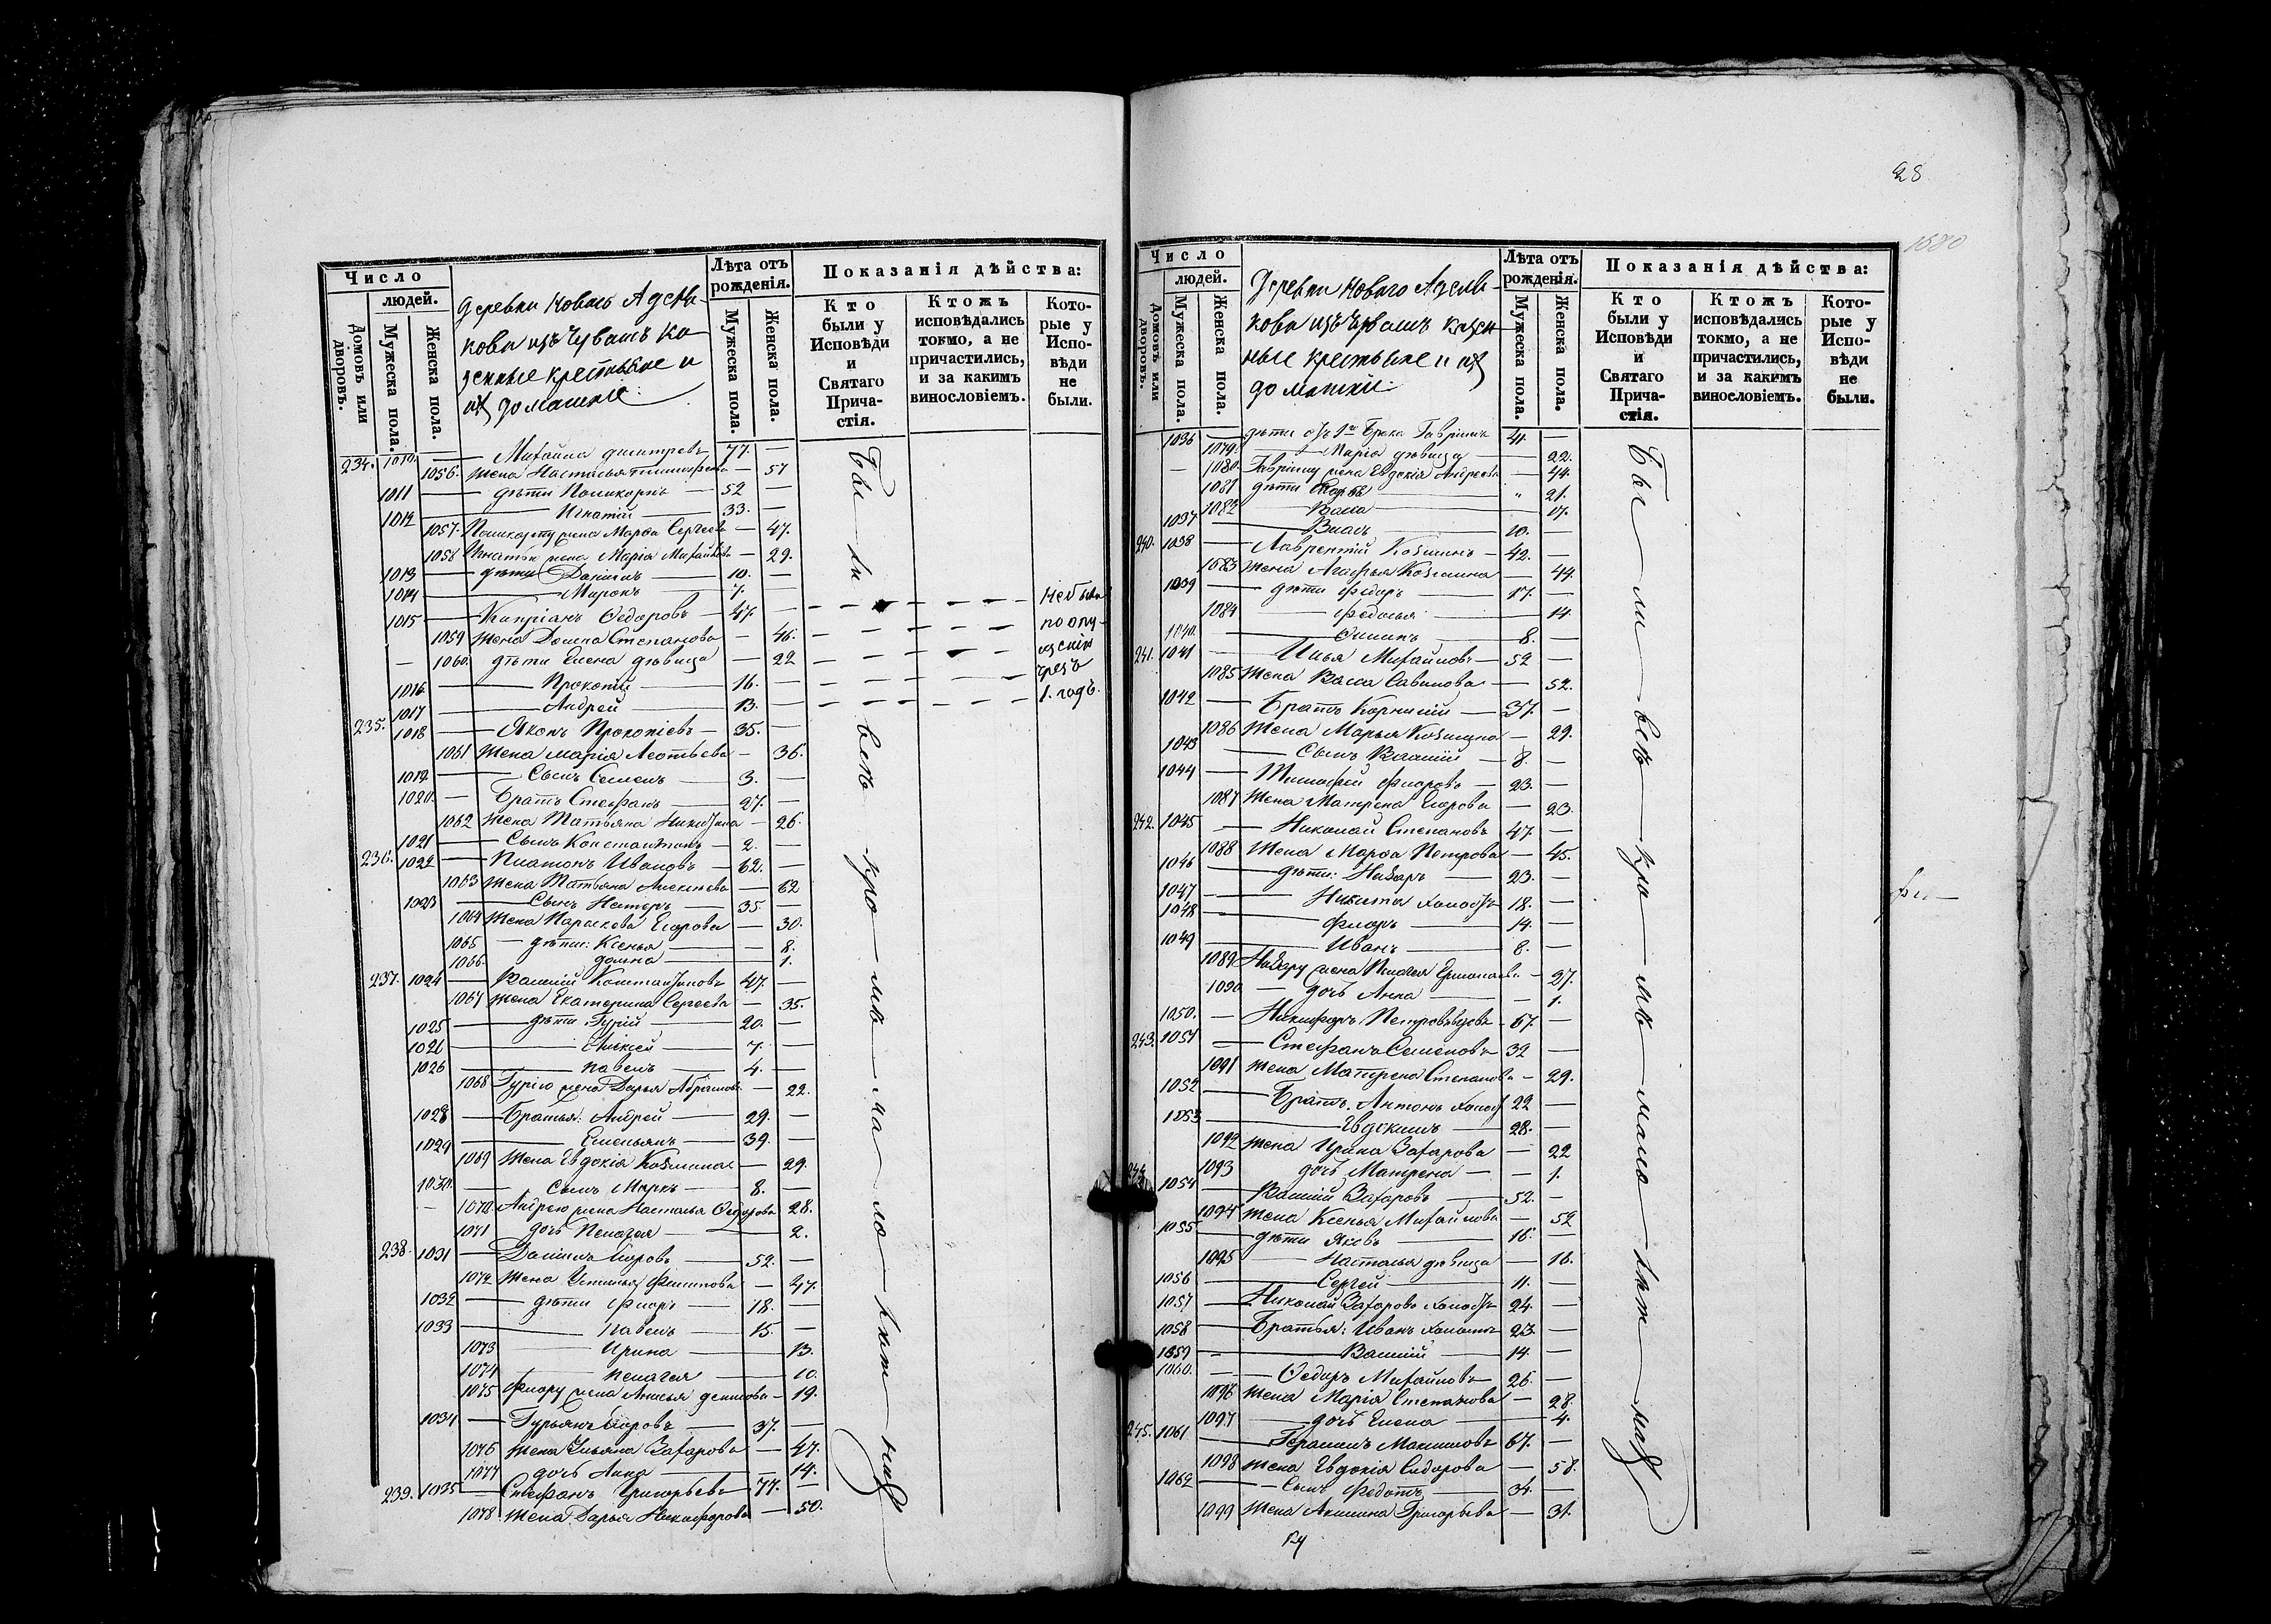 28
1580
Число
людей.
Домовъ или дворовъ.
Мужеска пола.
Женска пола.
Деревни Новаго Адели-
кова изъ Чувашъ ка-
зенные крестьяне и
ихъ домашніе:
Лѣта отъ рожденія.
Мужеска пола.
Женска пола.
Показанія дѣйства:
Кто были у Исповѣди и Святаго Прича-стія.
Ктожъ исповѣдались токмо, а не причастились, и за какимъ винословіемъ.
Кото-рые у Испо-вѣди не были.
234. 1010. — Михайла Димитревъ 77. —
1056. жена Настасья Тимофеева — 57
1011 — дѣти Поликарпъ — 52 —
1012 — Игнатій — 33. —
1057. Поликарпу жена Марфа Сергеева — 47.
1058 Игнатью жена Марія Михайлова — 29.
1013 — дѣти Данилъ — 10. —
1014 — Миронъ — 7. —
1015 — Кипріанъ Ѳедоровъ — 47. — небыли
1059 жена Домна Степанова — 46. по опу-
— 1060. дѣти Елена дѣвица — 22 щенію
1016 — Прокопій — 16. — чрезъ
1017 — Андрей — 13. — 1. годъ.
235. 1018 — Яковъ Прокопіевъ — 35. —
1061 жена Марія Леотьева — 36.
1019. — Сынъ Семенъ — 3. —
1020. — Братъ Стефанъ — 27. —
1062 жена Татьяна Никитина — 26.
1021 — Сынъ Константинъ — 2. —
236. 1022 — Платонъ Ивановъ — 62. —
1063 жена Татьяна Алексеева — 62
1023 — Сынъ Несторъ — 35 —
1064 жена Параскева Егорова — 30.
1065 — дѣти: Ксенья — 8.
1066. Домна — 1.
237. 1024 — Василій Константиновъ 47. —
1067 жена Екатерина Сергеева — 35.
1025 — дѣти Гурій — 20. —
1026 — Алексей — 7. —
1026 — Павелъ — 4. —
1068 Гурію жена Дарья Абрамова — 22.
1028 — Братья: Андрей — 29. —
1029 — Емельянъ — 39. —
1069 жена Евдокія Козмина — 29.
1030. — Сынъ Маркъ — 8. —
— 1070 Андрею жена Настасья Ѳедорова 28.
1071 дочь Пелагея — 2.
238. 1031 — Данилъ Егоровъ — 52. —
1072 жена Устинья Филипова — 47.
1032 — дѣти Флоръ — 18. —
1033 — Павелъ — 15. —
1073 — Ирина — 13.
1074 — Пелагея — 10.
1075 Флору жена Анисья Денисова — 19.
1034 — Гурьянъ Егоровъ — 37. —
1076 жена Ульяна Захарова — 47.
1077 дочь Анна — 14.
239. 1035 — Стефанъ Григорьевъ 77. —
1078. жена Дарья Никифорова — 50.
Бы — ли — всѣ — кро — мѣ — ма — ло — лѣт — нихъ
Число
людей.
Домовъ или дворовъ.
Мужеска пола.
Женска пола.
Деревни Новаго Адели-
кова изъ Чувашъ казен-
ные крестьяне и ихъ
домашніи:
Лѣта отъ рожденія.
Мужеска пола.
Женска пола.
Показанія дѣйства:
Кто были у Исповѣди и Святаго Прича-стія.
Ктожъ исповѣдались токмо, а не причастились, и за какимъ винословіемъ.
Кото-рые у Испо-вѣди не были.
1036 — дѣти отъ 1го брака Гаврилъ 41. —
1079. — Марія дѣвица — 22.
— 1080. Гаврилу жена Евдокія Андреева — 44.
1081 дѣти — 21.
1082 — Васса — 17.
1037 — Власъ — 10. —
240. 1038 — Лаврентій Козминъ — 42. —
1083 жена Агафья Козмина — 44.
1039 — дѣти Федоръ — 17. —
1084 — Федосья — 14.
1040. — — 8. —
241. 1041 — Илья Михайловъ — 52 —
1085 жена Васса Савинова — 52.
1042 — Братъ Корнилій — 37. —
1086 жена Марья Козмина — 29.
1043 — Сынъ Василій — 8. —
1044 — Тимофей Флоровъ — 23. —
1087 жена Матрена Егорова — 23.
242. 1045 — Николай Степановъ 47 —
1088 жена Марфа Петрова — 45.
1046 — дѣти: Назаръ — 23. —
1047 — Никита холостъ 18. —
1048 — Флоръ — 14. —
1049 — Иванъ — 8. —
1089 Назару жена Пелагея Ермолаева — 27.
1090 — дочь Анна — 1.
1050. — Никифоръ Петровъ вдовъ — 67. —
243. 1051 — Стефанъ Семеновъ 32 —
1091 жена Матрена Степанова — 29.
1052 — Братъ Антонъ холостъ 22 —
1053 — Евдокимъ — 28. —
1092 жена Ирина Захарова — 22
1093 дочь Матрена — 1.
244. 1054 — Василій Захаровъ — 52. —
1094 жена Ксенья Михайлова — 52
1055 — дѣти Яковъ — 16. —
1095 — Настасья дѣвица — 16.
1056 — Сергей — 11. —
1057 — Николай Захаровъ холостъ 24. —
1058 — Братья: Иванъ холостъ 23. —
1059 — Василій — 14. —
1060. — Ѳедоръ Михайловъ 26. —
1096 жена Марія Степанова — 28.
1097 — дочь Елена — 4.
245. 1061 — Герасимъ Максимовъ 67. —
1098 жена Евдокія Сидорова — 58.
1062 — Сынъ Федотъ — 34. —
1099 жена Акилина Григорьева — 31.
Бы — ли — всѣ — кро — мѣ — мало — лѣт — нихъ